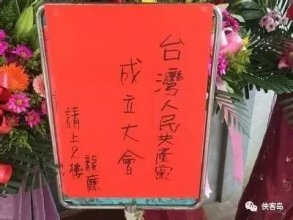 台灣人民共產黨
成立大會
請上2樓
龍廳
侠客岛